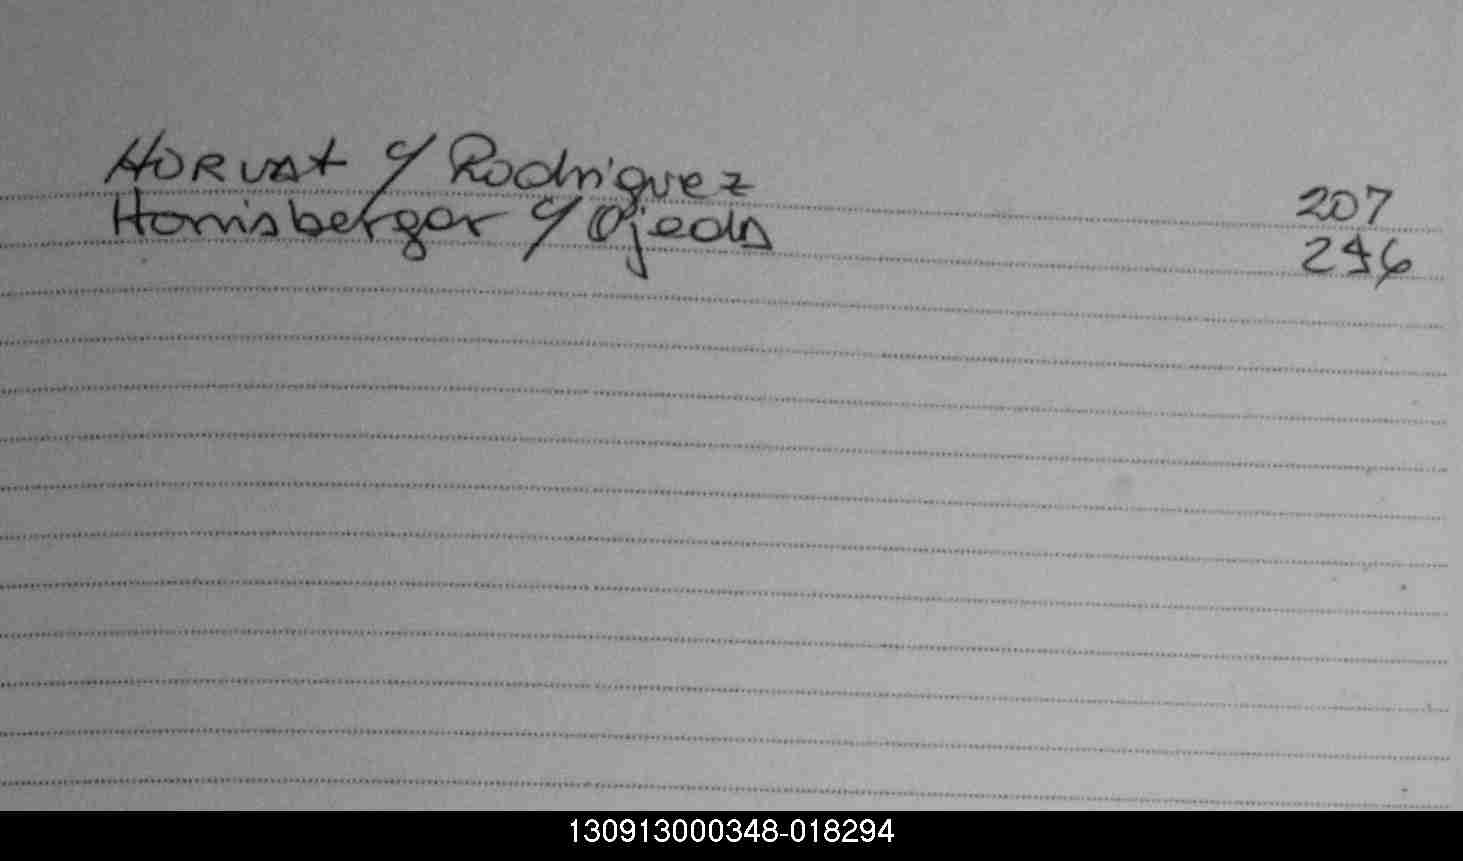 HORVAT y Rodriguez 207
Hornisberger y Ojeda 246
130913000348-018294